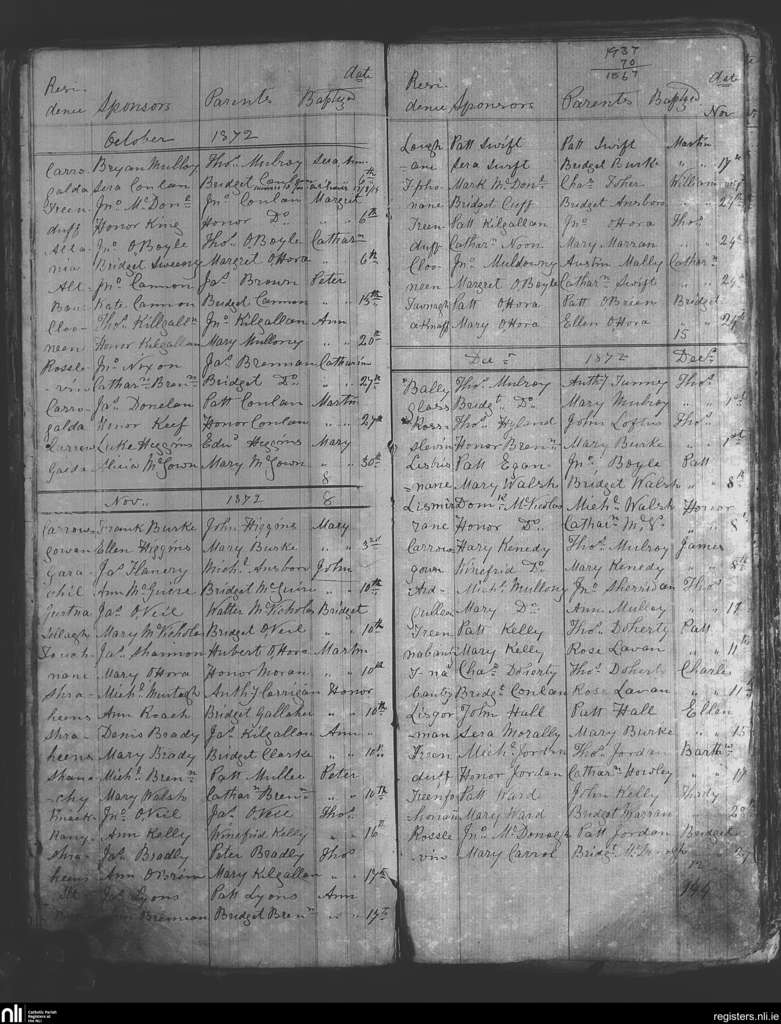 date
Resi
dence Sponsors Parents Baptized
October 1872
Carra Bryan Mulloy Thos. Mulroy Sera Ann
galda Sera Conlan Bridget Conlon 6th
Treen Jno. McDont. Jno. Conlan Margret
duff Honor King Honor Do. " " 6th
Jno. O'Boyle Thos. O'Boyle Catharn
Bridget Sweeny Margret O'Hora " " 6th
Alt Jno. Cannon Jas. Brown Peter
Kate Cannon Bridget Cannon " " 15th
Cloo Thos. Killgallon Jno. Kilgallan Ann
neen Honor Kilgallan Mary Mullony " " 20th
Rossle Jno. Nixon Jas. Brennan Catharin
vin Catharn. Bren Bridget Do. " " 27th
Carra Jas. Donelan Patt Conlan Martin
galda Honor Keef Honor Conlan " " 27th
Carrow Luke Higgins Edwd. Higgins Mary
Galda Alicia McGown Mary McGown " " 30th
8
Nov. 1872 8
Carrow Frank Burke John Higgins Mary
gowan Ellen Higgins Mary Burke " " 3rd
Gara Jas. Flanery Michl. John
chil Ann McGuire Bridget McGuire " " 10th
Gurtna Jas. O'Neil Walter McNichola Bridget
Tillagh Mary McNichola Bridget O'Neil " " 10th
Jas. Shannon Hubert O'Hora Martin
nane Mary O'Hora Honor Moran " " 10th
Shra Michl. Murtagh Anthy Carrigan Honor
heens Ann Roach Bridget Gallaher " " 10th
Shra Denis Brady Jas. Kilgallan Ann
heens Mary Brady Bridget Clarke " " 10th
Shana Michl. Bren Patt Mullee Peter
chy Mary Walsh Cathar Bren " " 10th
Knock Jno. O'Neil Jas. O'Neil Thos.
Rany Ann Kelly Winefrid Kelly " " 16
Shra Jas. Bradly Peter Bradly Thos
heens Ann O'Brien Mary Kilgallan " " 17th
Alt Jas. Lyons Patt Lyons Ann
Brennan Bridget Bren " " 17th
1937
70
1867
date
Resi
dence Sponsors Parents Baptized
Nov
Lough Patt Swift Patt Swift Martin
ane Sera Swift Bridget Burke " " 17th
Mark McDont. Chas. Foher William
nane Bridget Cuff Bridget " " 24th
Treen Patt Kilgallan Jno. O'Hora Thos.
duff Catharn. Noon Mary Marran " " 24th
Cloo Jno. Muldowny Austin Mally Catharn
neen Margret O'Boyle Catharn. Swift " " 24th
Tavnagh Patt O'Hora Patt O'Brien Bridget
Mary O'Hora Ellen O'Hora " 24th
15
Decr. 1872 Decr.
Bally Thos. Mulroy Anthy Tunney Thos.
glass Bridgt. Do. Mary Mulroy " " 1st
Ross Thos. Hyland John Loftus Thos.
slevin Honor Bren Mary Burke " " 1st
Lishis Patt Egan Jno. Boyle Patt
nane Mary Walsh Bridget Walsh " " 8th
Lismir Domk. McNicolas Michl. Walsh Honor
rane Honor Do. Cathar " " 8
Carrow Hary Kenedy Thos. Mulroy James
gown Winefrid Do. Mary Kenedy " " 8th
Ard Michl. Mullony Jno. Sherridan Thos
Cullen Mary Do. Ann Mulroy " "
Treen Patt Kelly Thos. Doherty Patt
nabanti Mary Kelly Rose Lavan " " 11th
Chas. Doherty Thos. Dohert Charles
bantry Bridgt. Conlan Rose Lavan " " 11th
Lisgor John Hall Patt Hall Ellen
man Sera Morally Mary Burke " " 15
Treen Michl. Jordan Thos. Jordan Barttm
duff Honor Jordan Catharn Howley " " 17
Treenfo Patt Ward John Kelly Thady
Mary Ward Bridget Marran " "
Rossle Jno. McDonagh Patt Jordan Bridget
vin Mary Carrol Bridgt.
12
144
nli Catholic Parish
Registers at
the NLI
registers.nli.ie